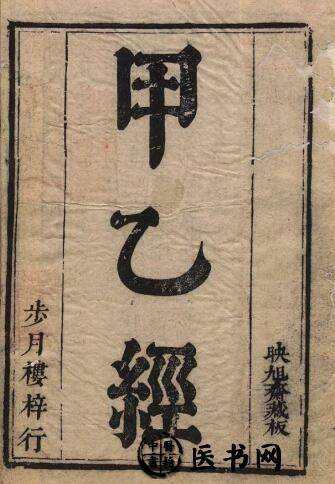 映旭齋藏板
甲乙經
步月樓梓行
医书网